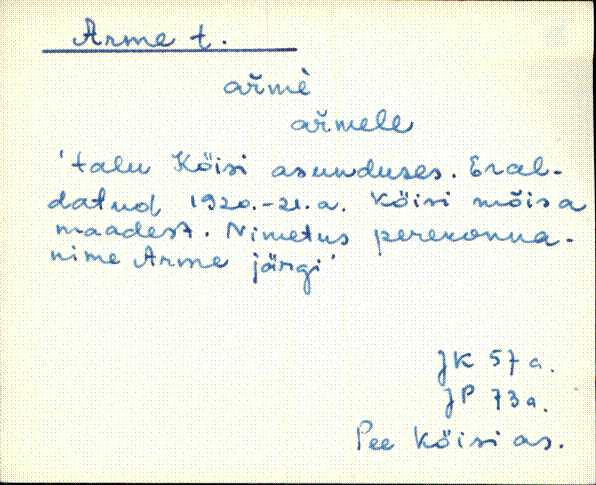 Arme t.
ar̆mè
ar̆mele
'talu Köisi asunduses. Eral-
datud 1920.-21.a. Köisi mõisa
maadest. Nimetus perekonna-
nime Arme järgi'
JK 57 a.
JP 73a.
Pee Köisi as.